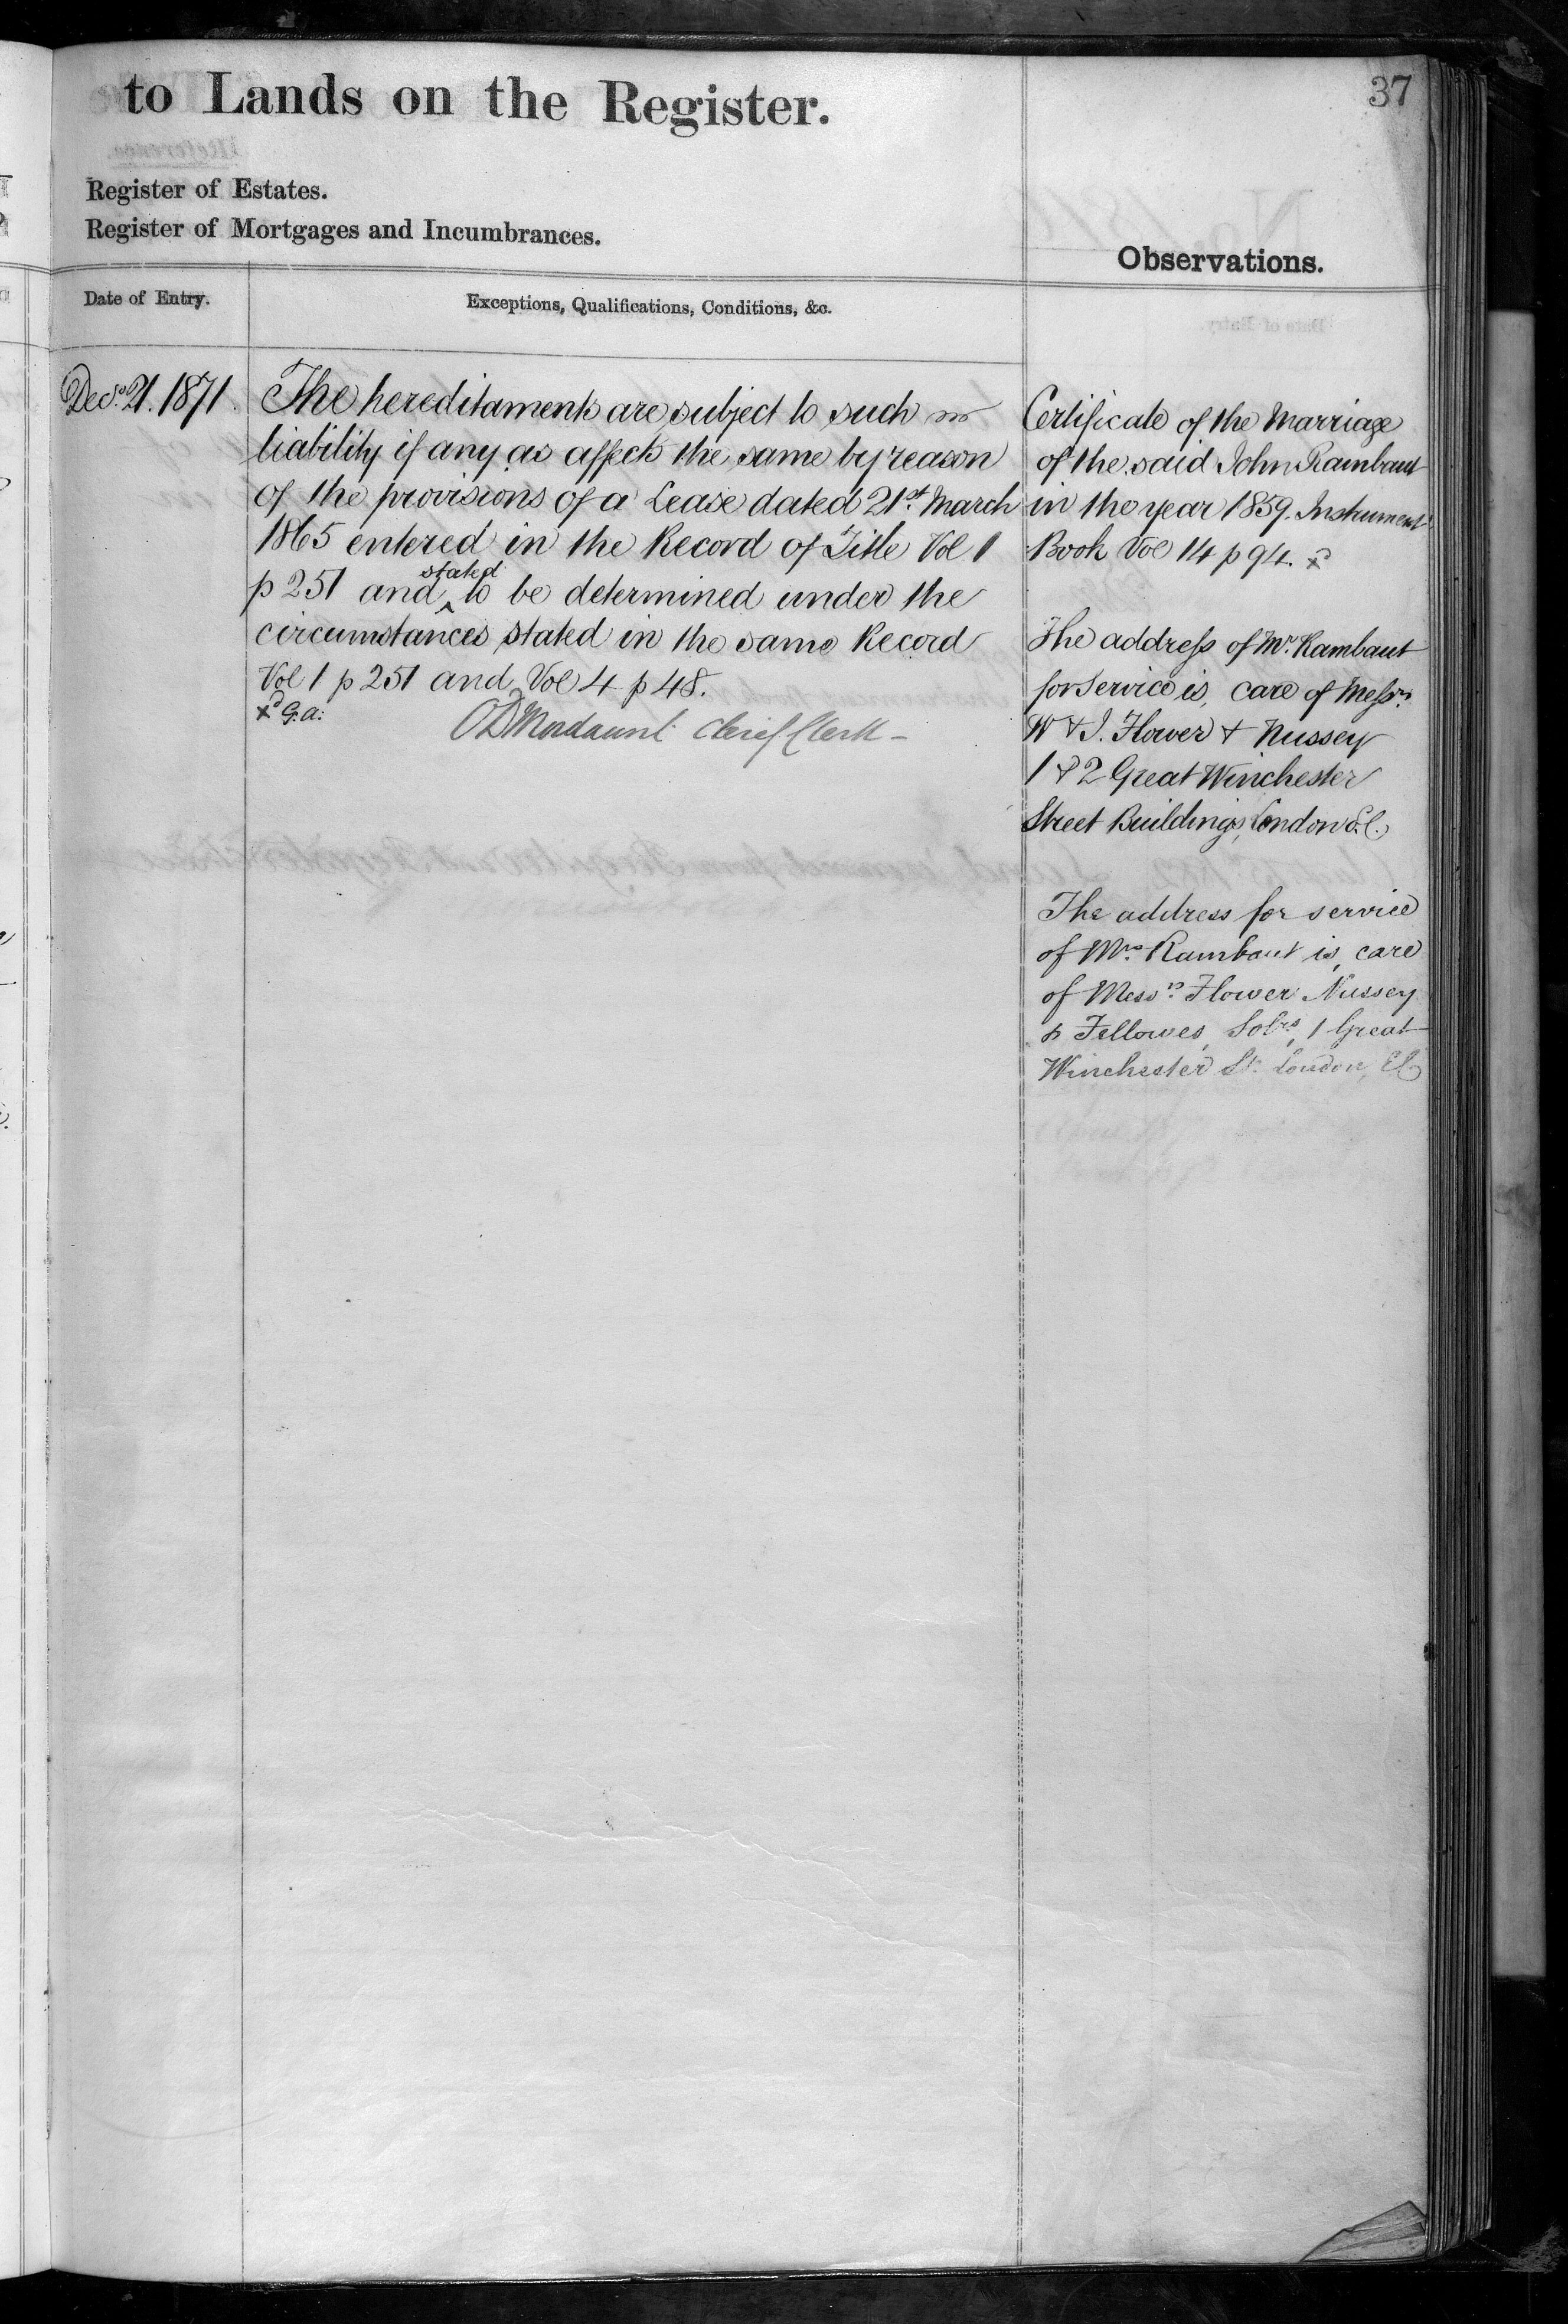 37
to Lands on the Register.
Register of Estates.
Register of Mortgages and Incumbrances.
Observations.
Date of Entry.
Exceptions, Qualifications, Conditions, &c.
Decr. 21. 1871.
The hereditaments are subject to such
liability if any as affects the same by reason
of the provisions of a Lease dated 21st. March
1865 entered in the Record of Title Vol 1
p 251 and stated to be determined under the
circumstances stated in the same Record
Vol 1 p 251 and Vol 4 p 48.
xd G.A.
Mordaunt Chief Clerk
Certificate of the Marriage
of the said John Rambaut
in the year 1859. Instrument
Book Vol 14 p 94. xd
The address of Mr. Rambaut
for service is, care of Messrs.
W & J. Flower & Nussey
1 & 2 Great Winchester
Street Buildings, London E.C.
The address for service
of Mrs. Rambaut is, care
of Messrs. Flower Nussey
& Fellowes, Solrs, 1 Great
Winchester St. London, EC